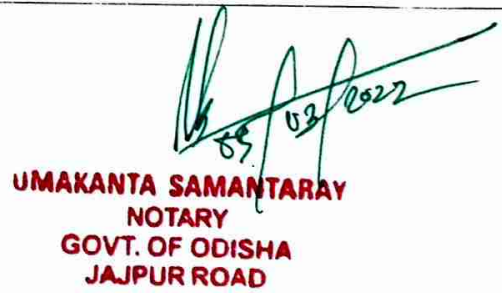 03/2022
UMAKANTA SAMANTARAY
NOTARY
GOVT. OF ODISHA
JAJPUR ROAD